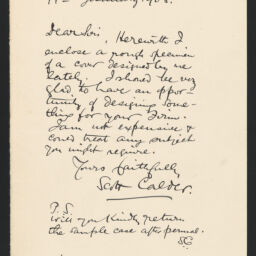 January 1908.
Dear Sir. Herewith I
enclose a rough specimen
of a cover designed by me
lately. I should be very
glad to have an oppor-
tunity of designing some-
thing for your Firm.
I am not expensive &
could treat any subject
you might require.
Yours faithfully
Scott Calder.
P.S.
Will you kindly return
the sample case after perusal.
SC